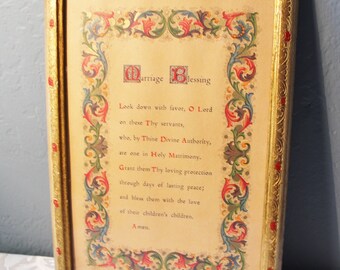 Marriage Blessing
Look down with favor, O Lord
on these Thy servants,
who, by Thine Divine Authority,
are one in Holy Matrimony,
Grant them Thy loving protection
through days of lasting peace;
and bless them with the love
of their children's children,
Amen.